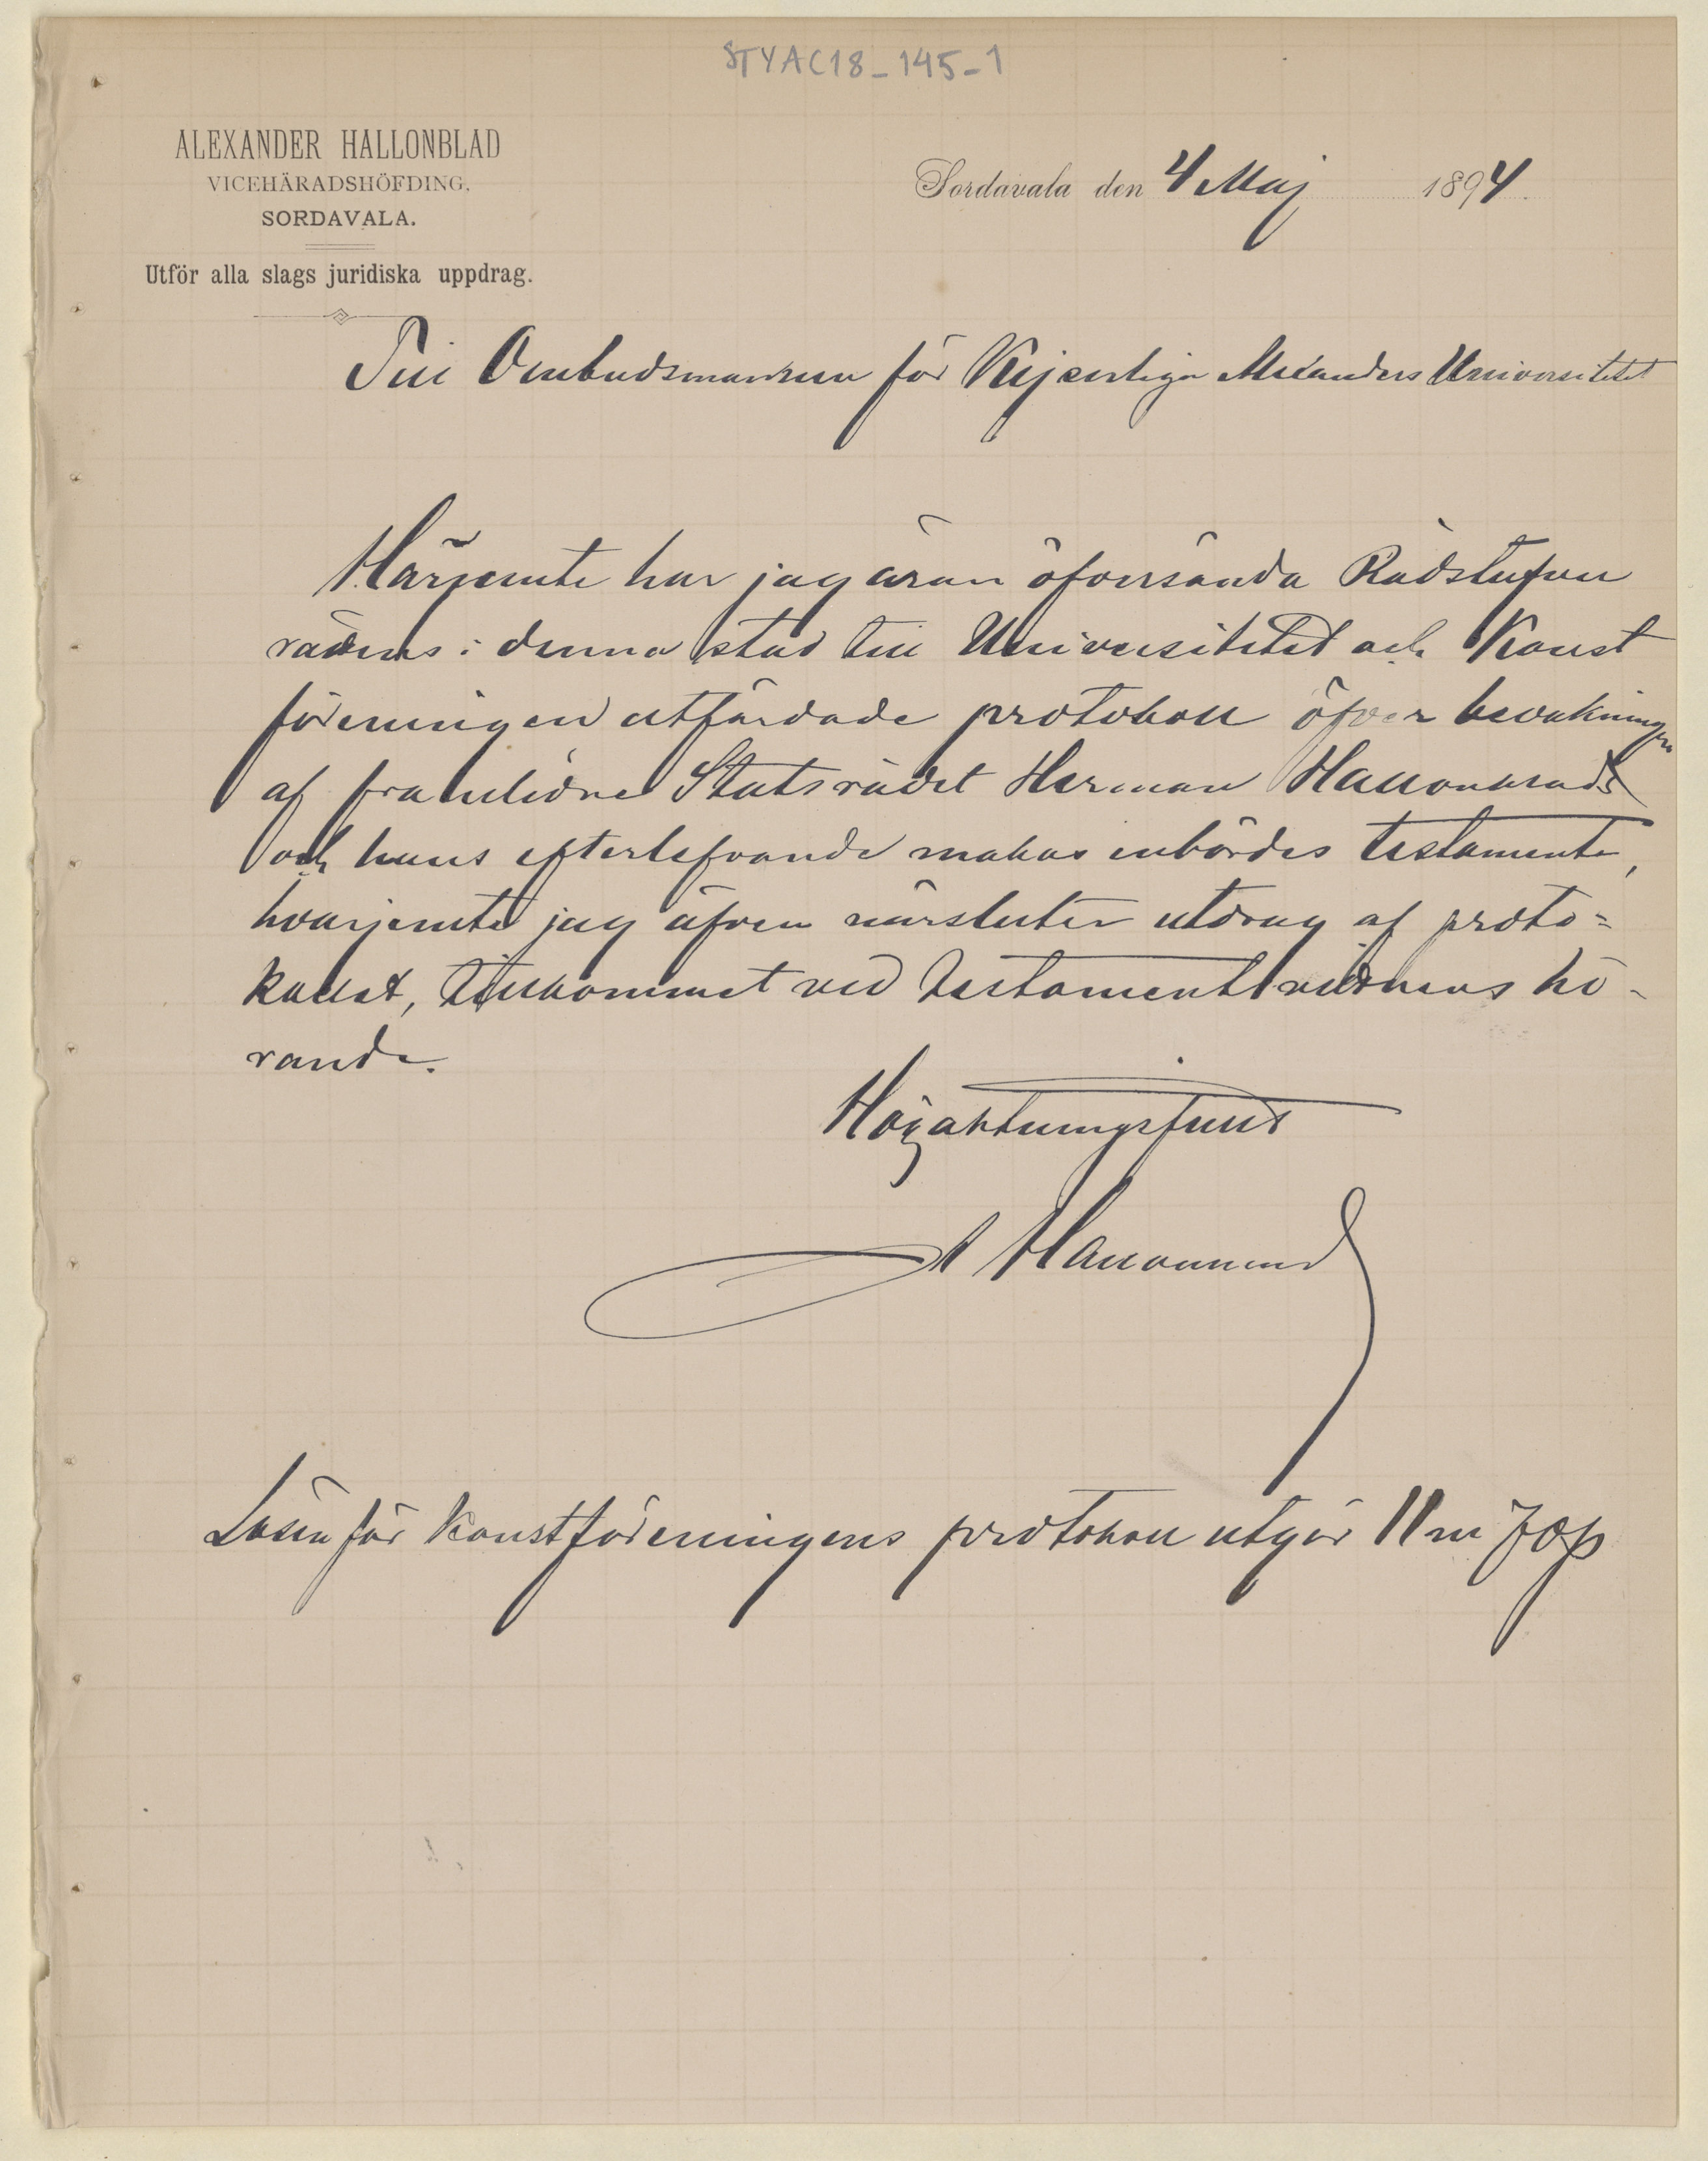 STYAC18_145_1
ALEXANDER HALLONBLAD
VICEHÄRADSHÖFDING.
SORDAVALA.
Utför alla slags juridiska uppdrag.
Sordavala den 4 Maj 1894.
Till Ombudsmannen för Kejserliga Alexanders Universitetet
Härjemte har jag äran öfversända Rådstufvu
rättens i denna stad till Universitetet och Konst
föreningen utfärdade protokoll öfver bevakningen
af framlidne Statsrådet Herman Hallonblads
och hans efterlefvande makas inbördes testamente,
hvarjemte jag äfven närsluter utdrag af proto-
kollet, tillkommet vid testamentsvittnenas hö-
rande.
Högaktningsfullt
A Hallonblad
Lösen för Konstföreningens protokoll utgör 11 m 70 p